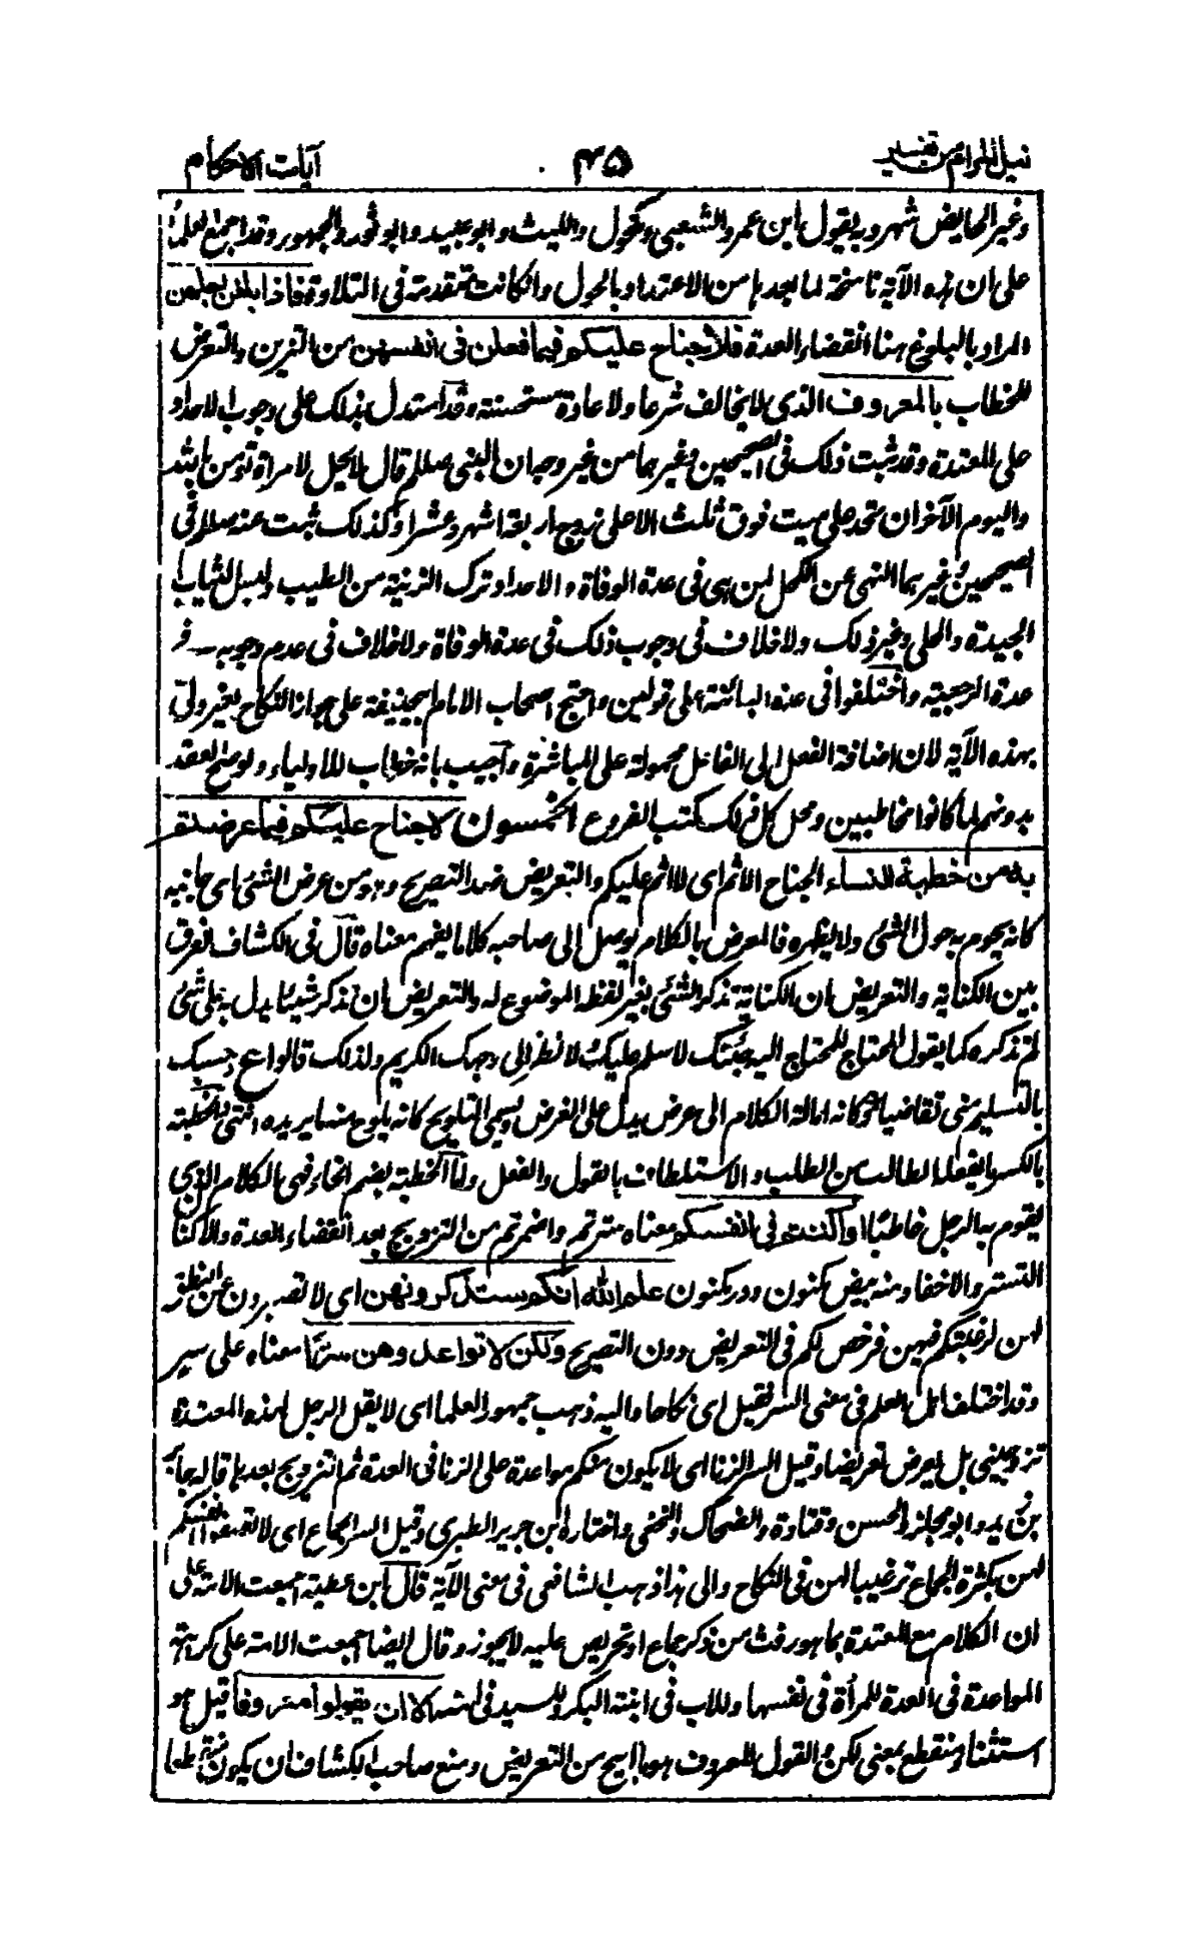 نيل المرام من تفسير ٤٥ آيات الاحكام
وغير الحايض شهر وبه يقول ابن عمر والشعبي ومكحول والليث وابو عبيد وابو ثور والجمهور وقد اجمع العلماء
على ان هذه الآية ناسخة لما بعدها من الاعتداد بالحول وان كانت متقدمة في التلاوة فاذا بلغن اجلهن
المراد بالبلوغ هنا انقضاء العدة فلا جناح عليكم فيما فعلن في انفسهن من التزين والتعرض
للخطاب بالمعروف الذي لا يخالف شرعا ولا عادة مستحسنة وقد استدل بذلك على وجوب الاحداد
على المعتدة وقد ثبت ذلك في الصحيحين وغيرهما من غير وجه ان النبي صللم قال لا يحل لامرأة تؤمن بالله
واليوم الآخر ان تحد على ميت فوق ثلث الا على زوج اربعة اشهر وعشرا وكذلك ثبت عنه صللم في
الصحيحين وغيرهما النهي عن الكحل لمن هي في عدة الوفاة والاحداد ترك الزينة من الطيب ولبس الثياب
الجيدة والحلي وغير ذلك ولا خلاف في وجوب ذلك في عدة الوفاة ولا خلاف في عدم وجوبه في
عدة الرجعية واختلفوا في عدة البائنة على قولين واحتج اصحاب الامام ابيحنيفة على جواز النكاح بغير ولي
بهذه الآية لان اضافة الفعل الى الفاعل محمولة على المباشرة واجيب بانه خطاب للاولياء ولو صح العقد
بدونهم لما كانوا مخاطبين ومحل كل ذلك كتب الفروع الخمسون لا جناح عليكم فيما عرضتم
به من خطبة النساء الجناح الاثم اي لا اثم عليكم والتعريض ضد التصريح وهو من عرض الشئ اي جانبه
كانه يحوم به حول الشئ ولا يظهره فالمعرض بالكلام يوصل الى صاحبه كلاما يفهم معناه قال في الكشاف الفرق
بين الكناية والتعريض ان الكناية تذكر الشئ بغير لفظه الموضوع له والتعريض ان تذكر شيئا يدل به على شئ
لم تذكره كما يقول المحتاج للمحتاج اليه جئتك لاسلم عليك لانظر الى وجهك الكريم ولذلك قالوا ع حسبك
بالتسليم مني تقاضيا وكانه امالة الكلام الى عرض يدل على الغرض ويسمى التلويح كانه يلوح منه ما يريده انتهى والخطبة
بالكسر ما يفعله الطالب من الطلب والاستلطاف بالقول والفعل واما الخطبة بضم الخاء فهي الكلام الذي
يقوم به الرجل خاطبا او اكننتم في انفسكم معناه سترتم واضمرتم من التزويج بعد انقضاء العدة والاكنان
التستر والاخفاء ومنه بيض مكنون ودر مكنون علم الله انكم ستذكرونهن اي لا تصبرون عن النطق
لهن لرغبتكم فيهن فرخص لكم في التعريض دون التصريح ولكن لا تواعدوهن سرا معناه على سير
وقد اختلف اهل العلم في معنى السر فقيل اي نكاحا واليه ذهب جمهور العلما اي لا يقل الرجل لهذه المعتدة
تزوجيني بل يعرض تعريضا وقيل السر الزنا اي لا يكون منكم مواعدة على الزنا في العدة ثم التزويج بعدها قاله جابر
بن زيد وابو مجلز والحسن وقتادة والضحاك والنخعي واختاره ابن جرير الطبري وقيل السر الجماع اي لا تصفوا انفسكم
لهن بكثرة الجماع ترغيبا لهن في النكاح والى هذا ذهب الشافعي في معنى الآية قال ابن عطية اجمعت الامة على
ان الكلام مع المعتدة بما هو رفث من ذكر جماع او تحريض عليه لا يجوز وقال ايضا اجمعت الامة على كراهة
المواعدة في العدة للمرأة في نفسها وللاب في ابنته البكر وللسيد في امته الا ان يقولوا معروفا قيل هو
استثناء منقطع بمعنى لكن والقول المعروف هو ما ابيح من التعريض ومنع صاحب الكشاف ان يكون منقطعا